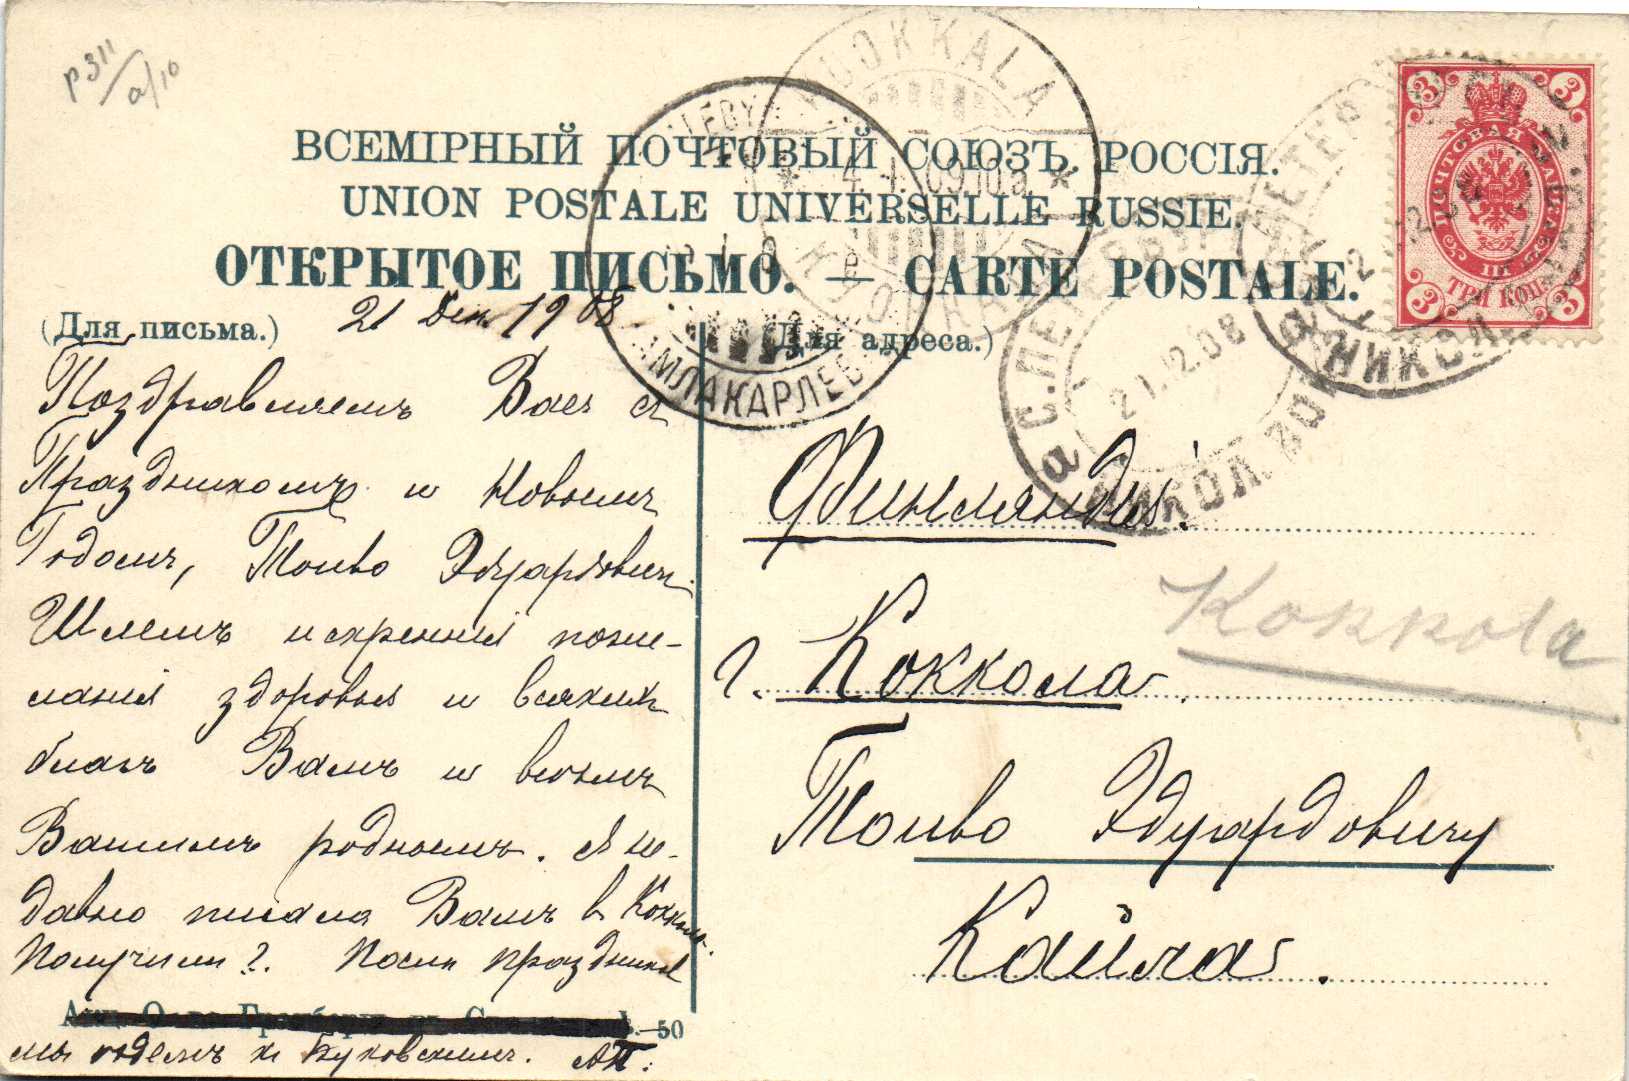 р311/а/10
ВСЕМІРНЫЙ ПОЧТОВЫЙ СОЮЗЪ. РОССІЯ.
UNION POSTALE UNIVERSELLE RUSSIE.
ОТКРЫТОЕ ПИСЬМО. — CARTE POSTALE.
(Для письма.)
21 Дек. 1908
Поздравляемъ Васъ съ
Праздникомъ и Новымъ
Годомъ, Тоиво Эдуардовичъ.
Шлемъ искреннія поже-
ланія здоровья и всякихъ
благъ Вамъ и всѣмъ
Вашимъ роднымъ. Я не-
давно писала Вамъ в Коккола.
Получили? Послѣ праздника
мы
къ Жуковскимъ. АП.
50
(Для адреса.)
Финляндія.
г. Коккола.
Kokkola
Тоиво Эдуардовичу
Кайла.
KUOKKALA
4 1 09 10a
КУОККАЛА
ГАМЛАКАРЛЕБИ
С.ПЕТЕРБУРГ
21.12.08
НИКОЛ. ВОК
а
ПОЧТОВАЯ МАРКА
3 3 3 3
ТРИ КОП.